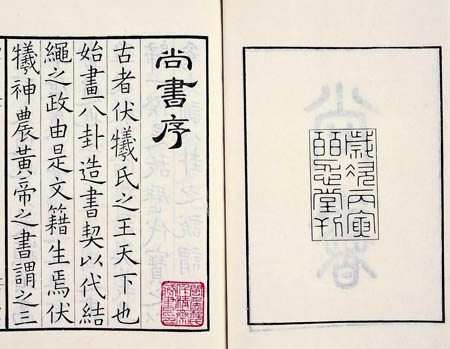 歲次丙寅
皕忍堂刊
尚書序
古者伏犧氏之王天下也
始畫八卦造書契以代結
繩之政由是文籍生焉伏
犧神農黃帝之書謂之三